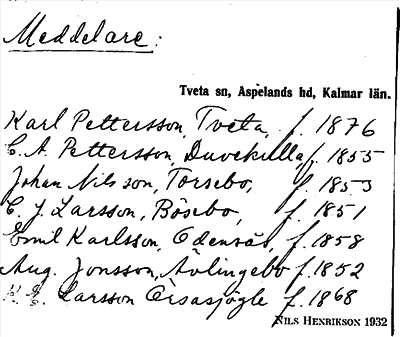 Meddelare:
Tveta sn, Aspelands hd, Kalmar län.
Karl Pettersson, Tveta, f. 1876
C. A. Pettersson, Duvekulla, f. 1855
Johan Nilsson, Torsebo, f. 1853
C. J. Larsson, Bösebo, f. 1851
Emil Karlsson, Odensås, f. 1858
Aug. Jonsson, Ävlingebo f. 1852
K. E. Larsson Örsasjögle f. 1868
NILS HENRIKSON 1932